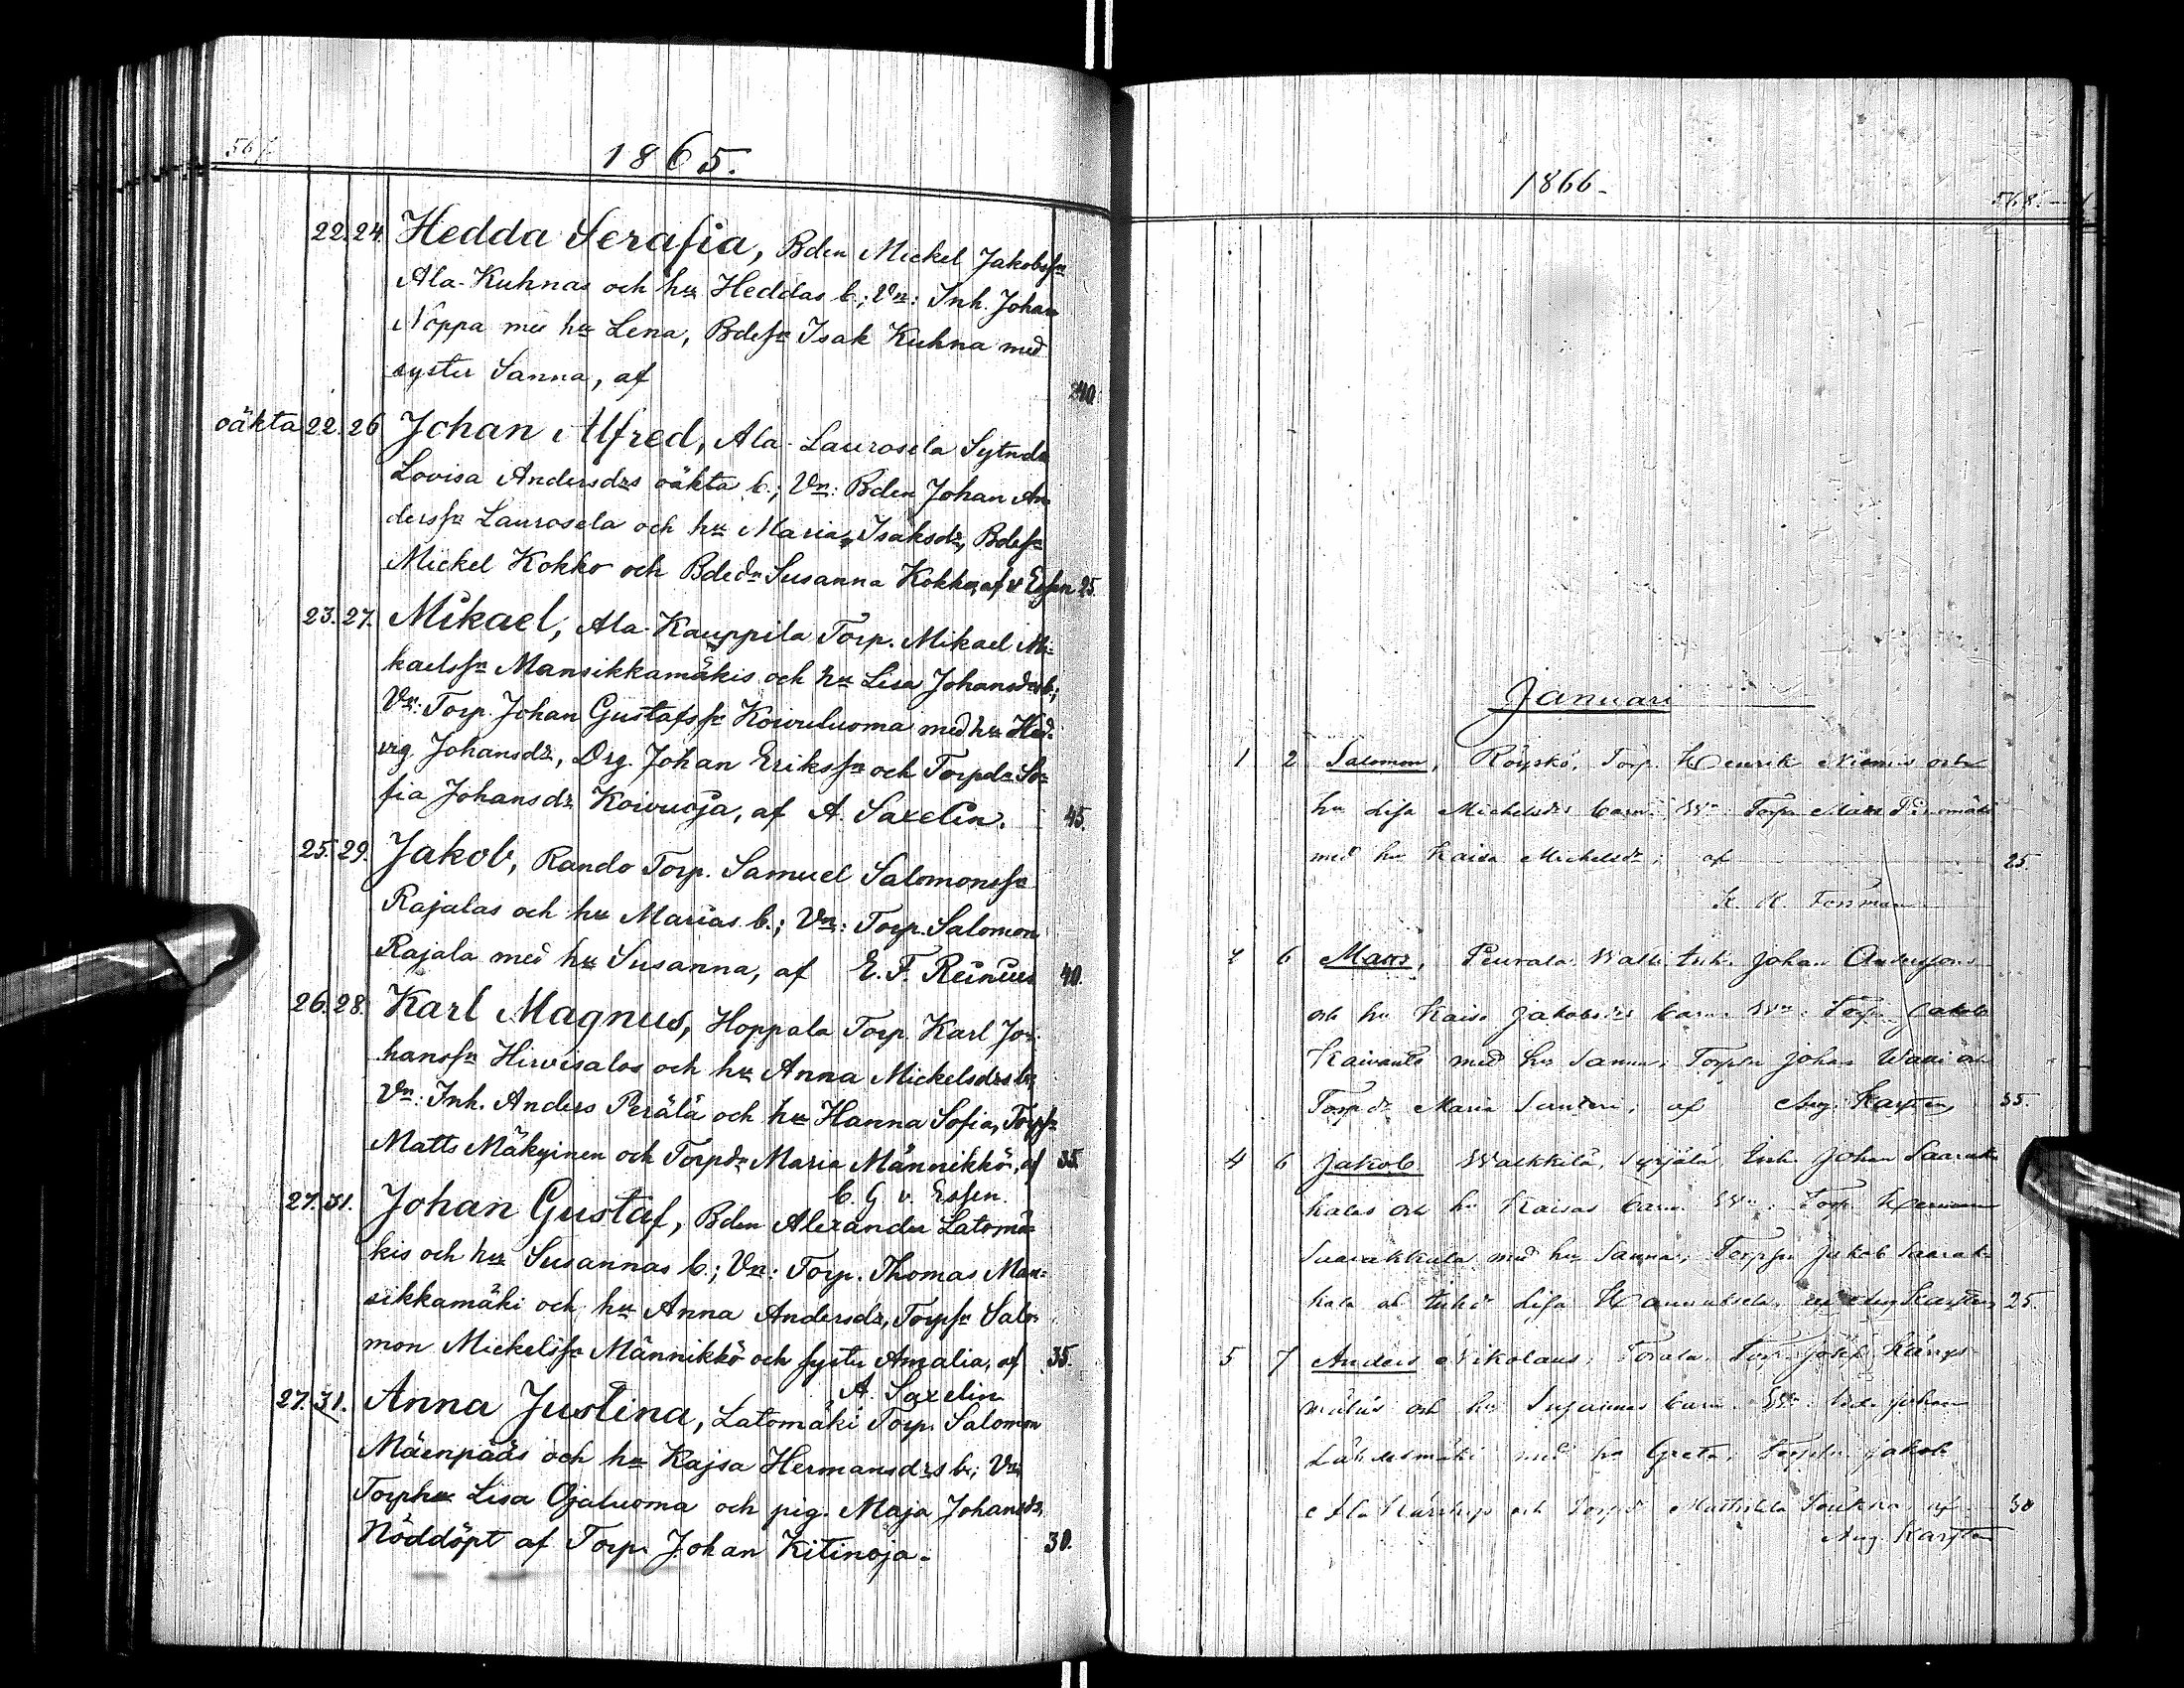 567.
1865.
22. 24. Hedda Serafia, Bden Mickel Jakobssn
Ala-Kuhnas och hu Heddas b.; Vn: Inh. Johan
Noppa med hu Lena, Bdessn Isak Kuhna med
syster Sanna, af 40.
oäkta 22. 26 Johan Alfred, Ala-Laurosela Sytnds
Lovisa Andersdrs oäkta b.; Vn: Bden Johan An
derssn Laurosela och hu Maria Isaksdr, Bdessn
Mickel Kokko och Bdedr Susanna Kokko, af v Essen 25.
23. 27. Mikael, Ala-Kauppila Torp. Mikael Mi=
kaelssn Mansikkamäkis och hu Lisa Johansdrs b.;
Vn: Torp. Johan Gustafssn Koivuluoma med hu Hed=
vig Johansdr, Drg. Johan Erikssn och Torpdr So=
fia Johansdr Koivuoja, af A. Saxelin. 45.
25. 29. Jakob, Rando Torp. Samuel Salomonssn
Rajalas och hu Marias b.; Vn: Torp. Salomon
Rajala med hu Susanna, af E. F. Reinius 40.
26. 28. Karl Magnus, Hoppala Torp. Karl Jo=
hanssn Hirvisalos och hu Anna Mickelsdrs b.
Vn: Inh. Anders Perälä och hu Hanna Sofia, Torpssn
Matts Mäkyinen och Torpdr Maria Männikkö, af 35.
C. G. v. Essen.
27. 31. Johan Gustaf, Bden Alexander Latomä=
kis och hu Susannas b.; Vn: Torp. Thomas Man=
sikkamäki och hu Anna Andersdr, Torpssn Salo=
mon Mickelssn Männikkö och syster Amalia, af 35.
A. Saxelin
27. 31. Anna Justina, Latomäki Torp. Salomon
Mäenpääs och hu Kajsa Hermansdrs b.; Vn:
Torphu Lisa Ojaluoma och pig. Maja Johansdr,
Nöddöpt af Torp. Johan Kitinoja. 30.
1866.
568.
Januari
1 2 Salomon, Röyskö, Torp. Henrik Niemis och
hu Lisa Mickelsdrs barn. Wn Torp Matts
med hu Kaisa Mickelsdr; af 25.
K. K. Forsman
6 Matts, Peurala Walli Inh. Johan Anderssons
och hu Kaisa Jakobsdrs barn. Wn: Torp. Jakob
med hu Sanna, Torpsn Johan Walli och
Torpdr Maria af Aug. Karsten 35.
4 6 Jakob Walkkilä, Syrjälä, Inh. Johan Saarak
kalas och hu Kaisas barn. Wn: Torp. Herman
med hu Sanna, Torpsn Jakob Saarak
kala och Inhdr Lisa Hannuksela, af Aug Karsten 25.
5 7 Anders Nikolaus, Torala Torp Josef Kangs
och hu Susannas barn. Wn: Bd. Johan
med hu Greta, Torpsn Jakob
och Torpdr Mathilda af 30
Aug. Karsten